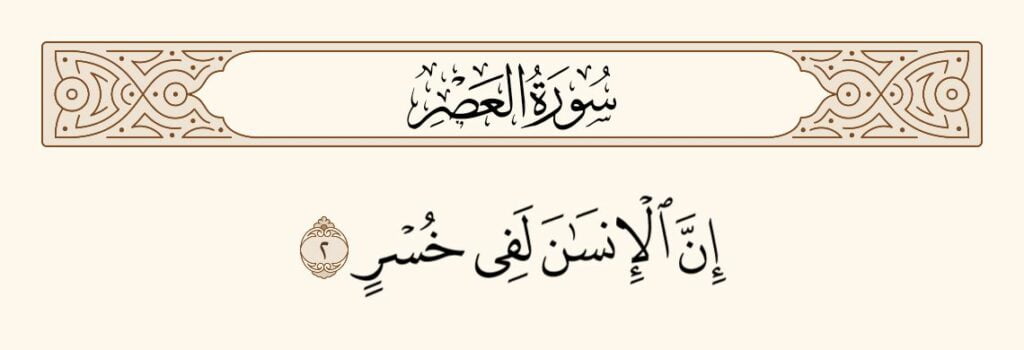 سُورَةُ العَصْرِ
إِنَّ ٱلْإِنسَـٰنَ لَفِى خُسْرٍ ٢